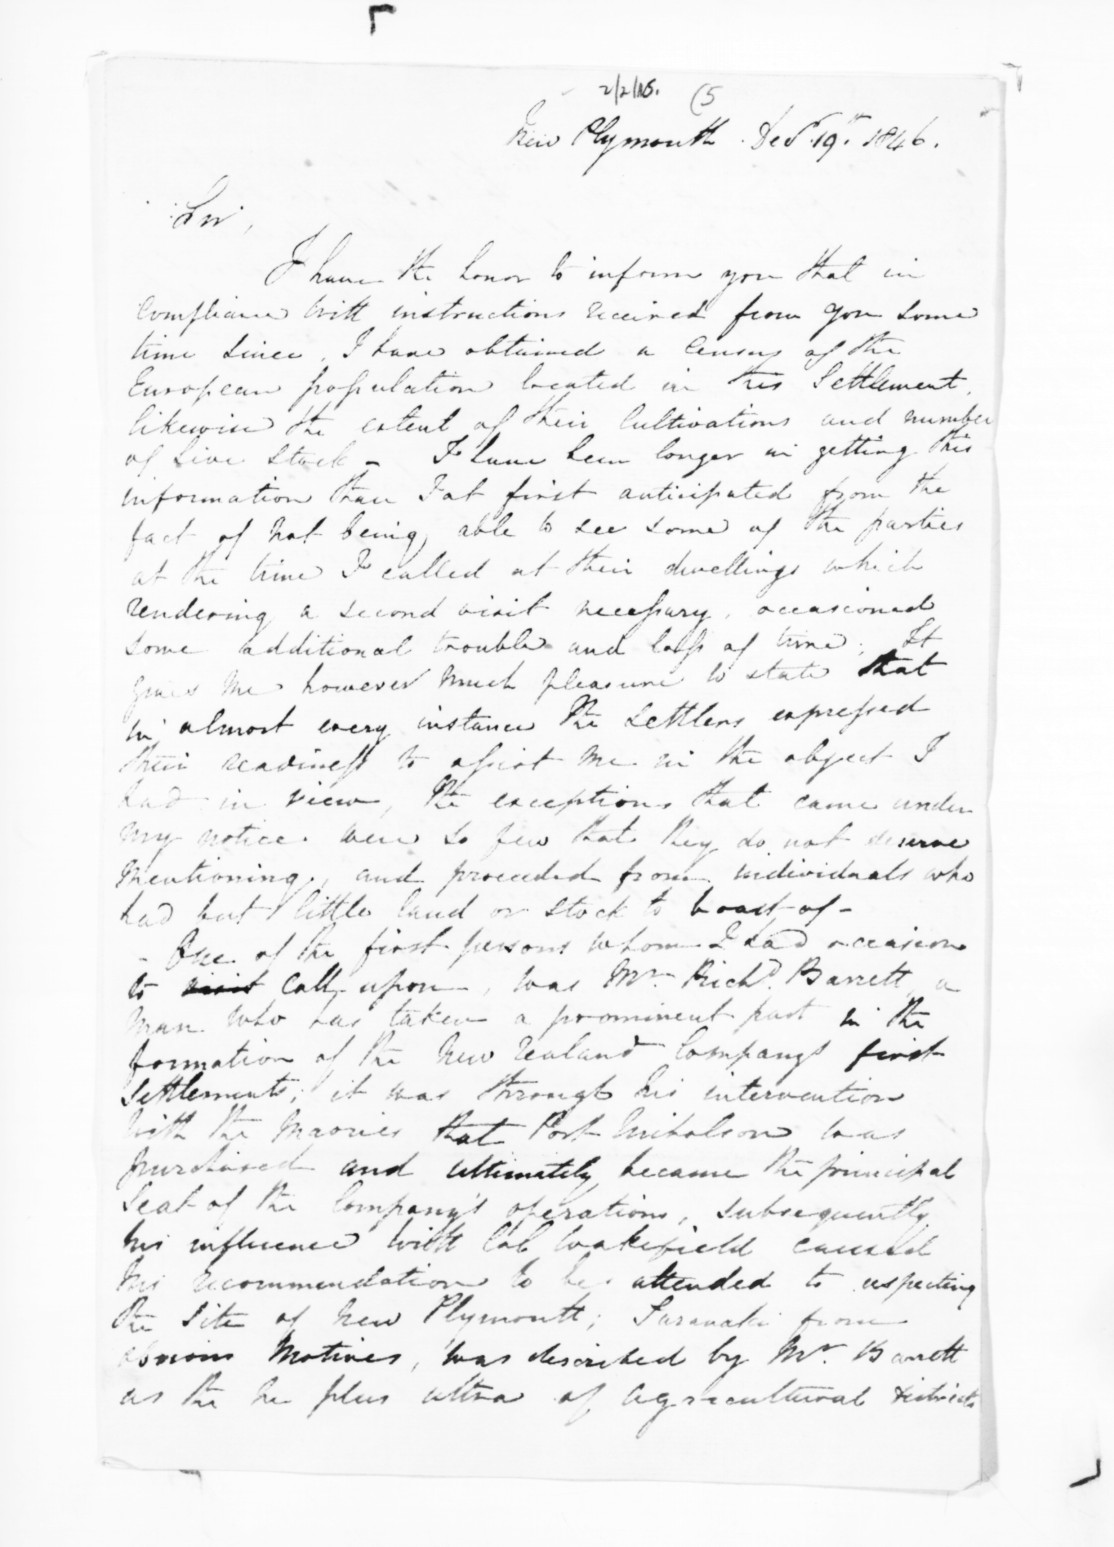 2/2/15. (5
New Plymouth. Decr. 19th. 1846.
Sir,
I have the honor to inform you that in
compliance with instructions received from you some
time since, I have obtained a census of the
European population located in this Settlement,
likewise the extent of their Cultivations and number
of Live Stock – I have been longer in getting this
information than I at first anticipated from the
fact of not being able to see some of the parties
at the time I called at their dwellings which
rendering a second visit necessary, occasioned
some additional trouble and loss of time; It
gives me however much pleasure to state that
in almost every instance the settlers expressed
their readiness to assist me in the object I
had in view, the exceptions that came under
my notice were so few that they do not deserve
mentioning, and proceeded from individuals who
had but little land or stock to boast of –
– One of the first persons whom I had occasion
to visit call upon, was Mr. Richd. Barrett, a
man who has taken a prominent part in the
formation of the New Zealand Company's first
Settlements; it was through his intervention
with the Maories that Port Nicholson was
purchased and ultimately became the principal
Seat of the Company's operations, subsequently
his influence with Col Wakefield caused
his recommendation to be attended to respecting
the site of New Plymouth; Taranaki from
obvious Motives, was described by Mr. Barrett
as the ne plus ultra of agricultural districts